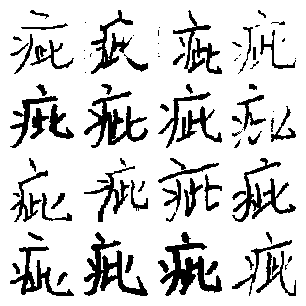 疵疵疵疵
疵疵疵疵
疵疵疵疵
疵疵疵疵